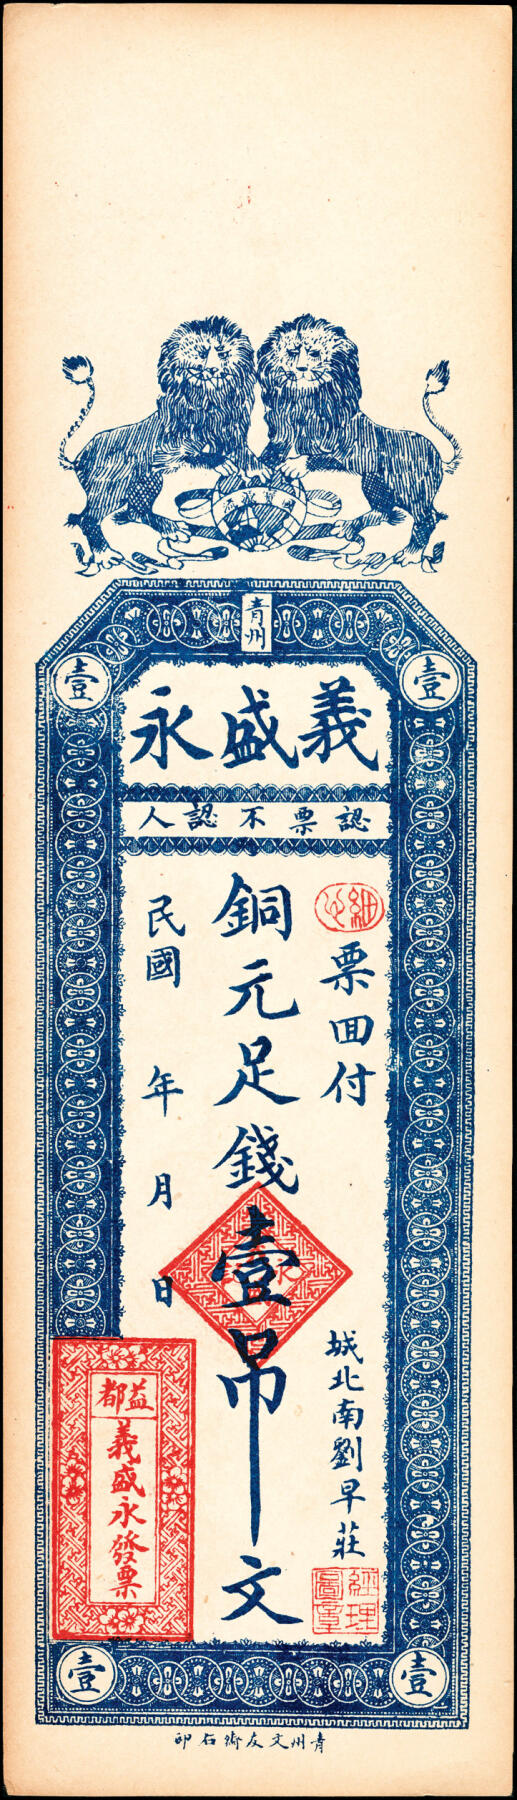 青州
壹
壹
義盛永
認票不認人
票回付
城北南劉早莊
經理圖章
銅元足錢壹吊文
民國 年 月 日
益都
義盛永發票
壹
壹
青州文友街石印